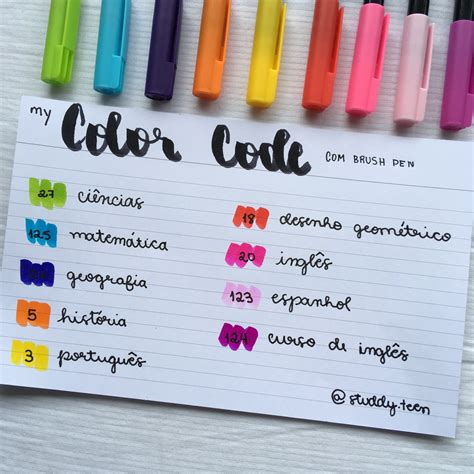 my Color Code COM BRUSH PEN
27 ciências
125 matemática
geografia
5 história
3 português
18 desenho geométrico
20 inglês
123 espanhol
124 curso de inglês
@studdy.teen